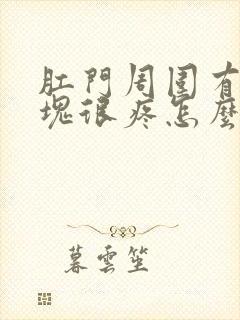 肛門周圍有
塊很疼怎麼
暮雲笙